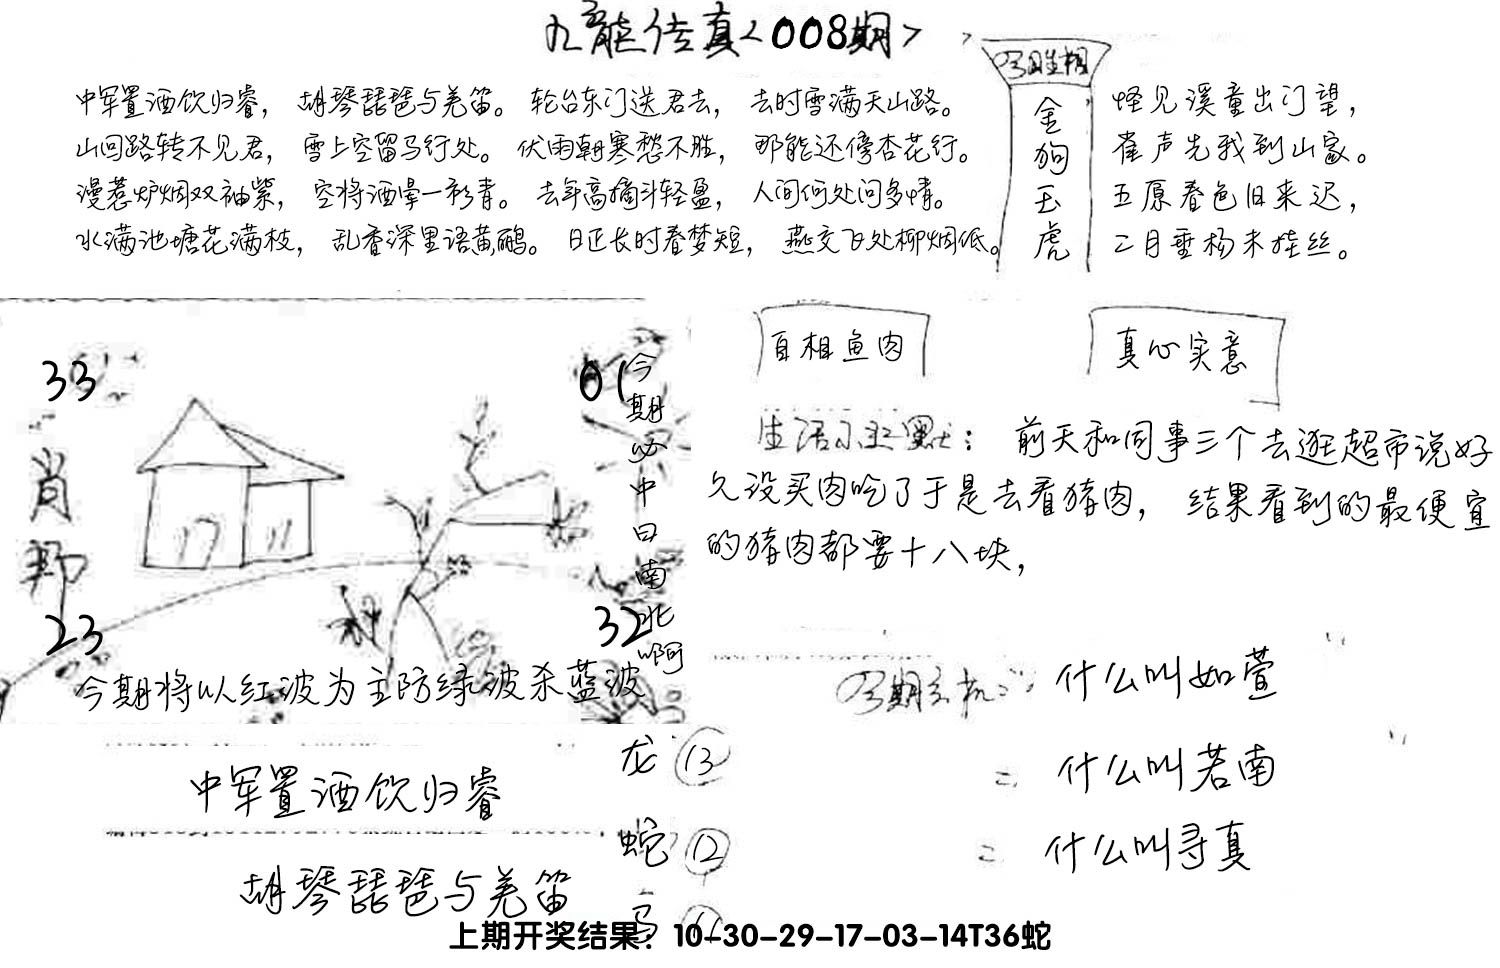 九龙传真<008期>
今日生相
金狗玉虎
中军置酒饮归睿，胡琴琵琶与羌笛。轮台东门送君去，去时雪满天山路。
山回路转不见君，雪上空留马行处。伏雨朝寒愁不胜，那能还傍杏花行。
漫惹炉烟双袖紫，空将酒晕一衫青。去年高摘斗轻盈，人间何处问多情。
水满池塘花满枝，乱香深里语黄鹂。日正长时春梦短，燕交飞处柳烟低。
怪见溪童出门望，
雀声先我到山家。
五原春色旧来迟，
二月垂杨未挂丝。
33
01
肖
23
32
今期必中曰南北啊
今期将以红波为主防绿波杀蓝波
自相鱼肉
真心实意
生活小幽默：前天和同事三个去逛超市说好
久没买肉吃了于是去看猪肉，结果看到的最便宜
的猪肉都要十八块，
今期玄机：什么叫如萱
什么叫若南
什么叫寻真
中军置酒饮归睿
胡琴琵琶与羌笛
龙 13
蛇 12
马 11
上期开奖结果：10-30-29-17-03-14T36蛇